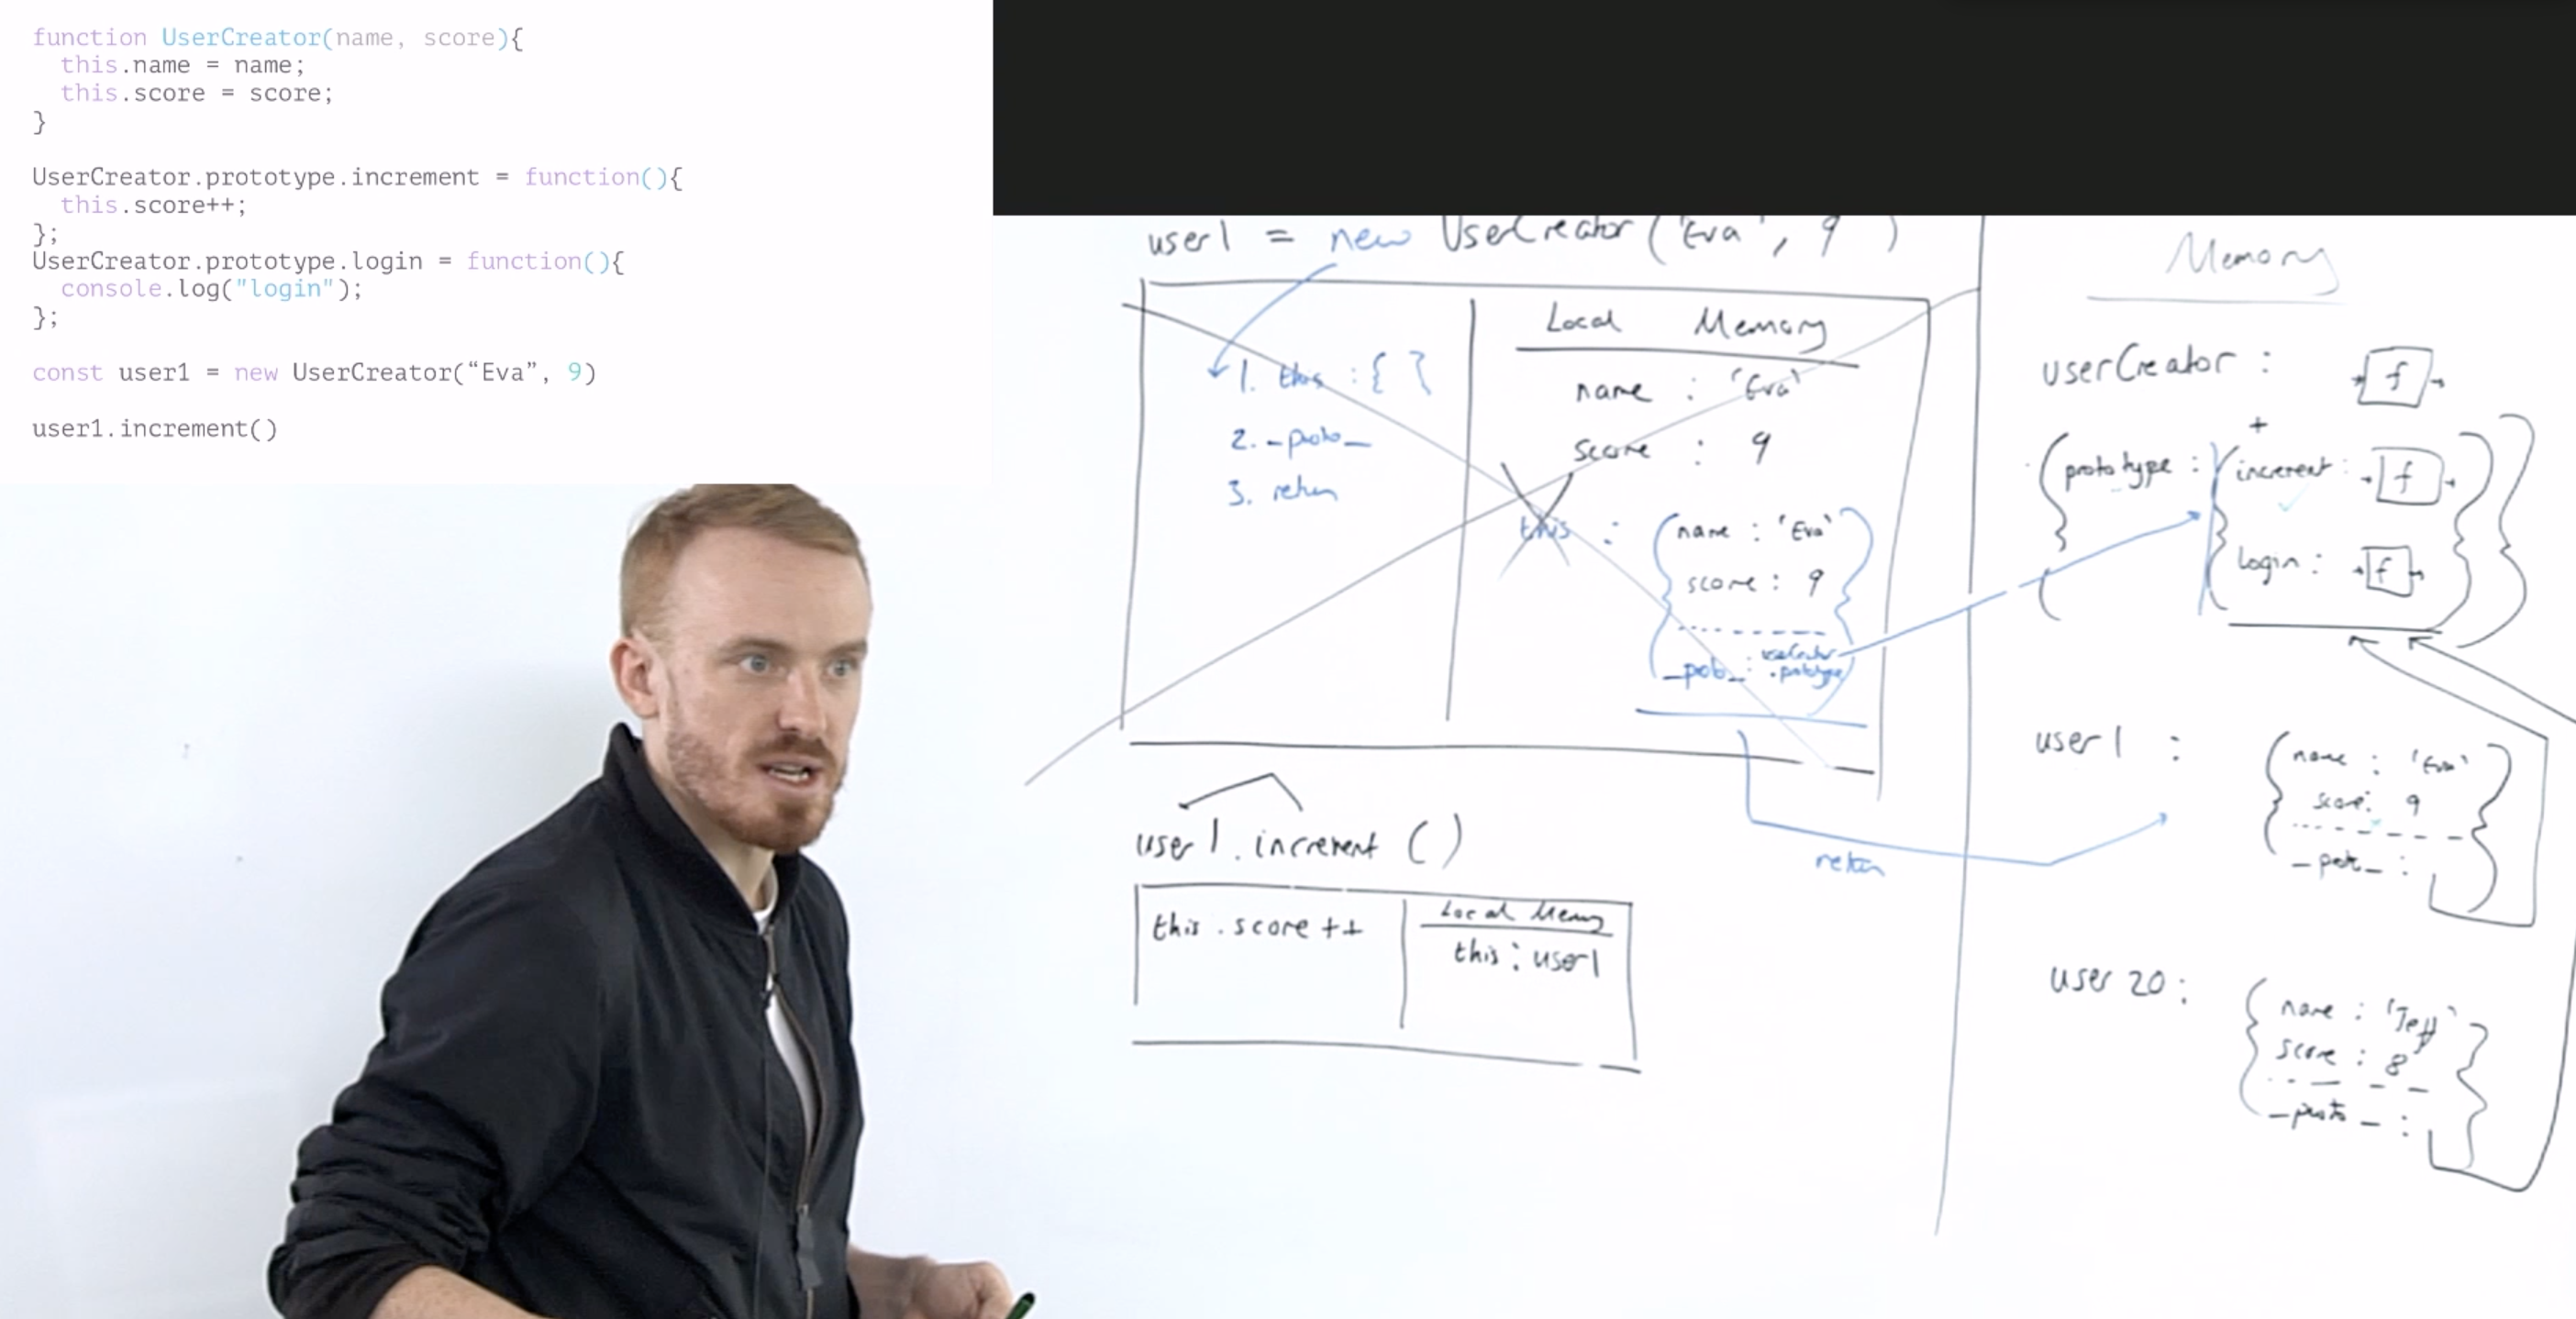 function UserCreator(name, score){
this.name = name;
this.score = score;
}
UserCreator.prototype.increment = function(){
this.score++;
};
UserCreator.prototype.login = function(){
console.log("login");
};
const user1 = new UserCreator(“Eva”, 9)
user1.increment()
user1 = new UserCreator ('Eva', 9 )
1. this : { }
2. _proto_
3. return
Local Memory
name : 'Eva'
score : 9
this : { name : 'Eva'
score : 9
_proto_ : userCreator
.prototype }
return
user1.increment ()
this.score++
Local Memory
this : user1
Memory
userCreator : f
+
{ prototype : { increment : f
login : f } }
user1 :
{ name : 'Eva'
score : 9
_proto_ : }
user20 :
{ name : 'Jeff'
score : 8
_proto_ : }